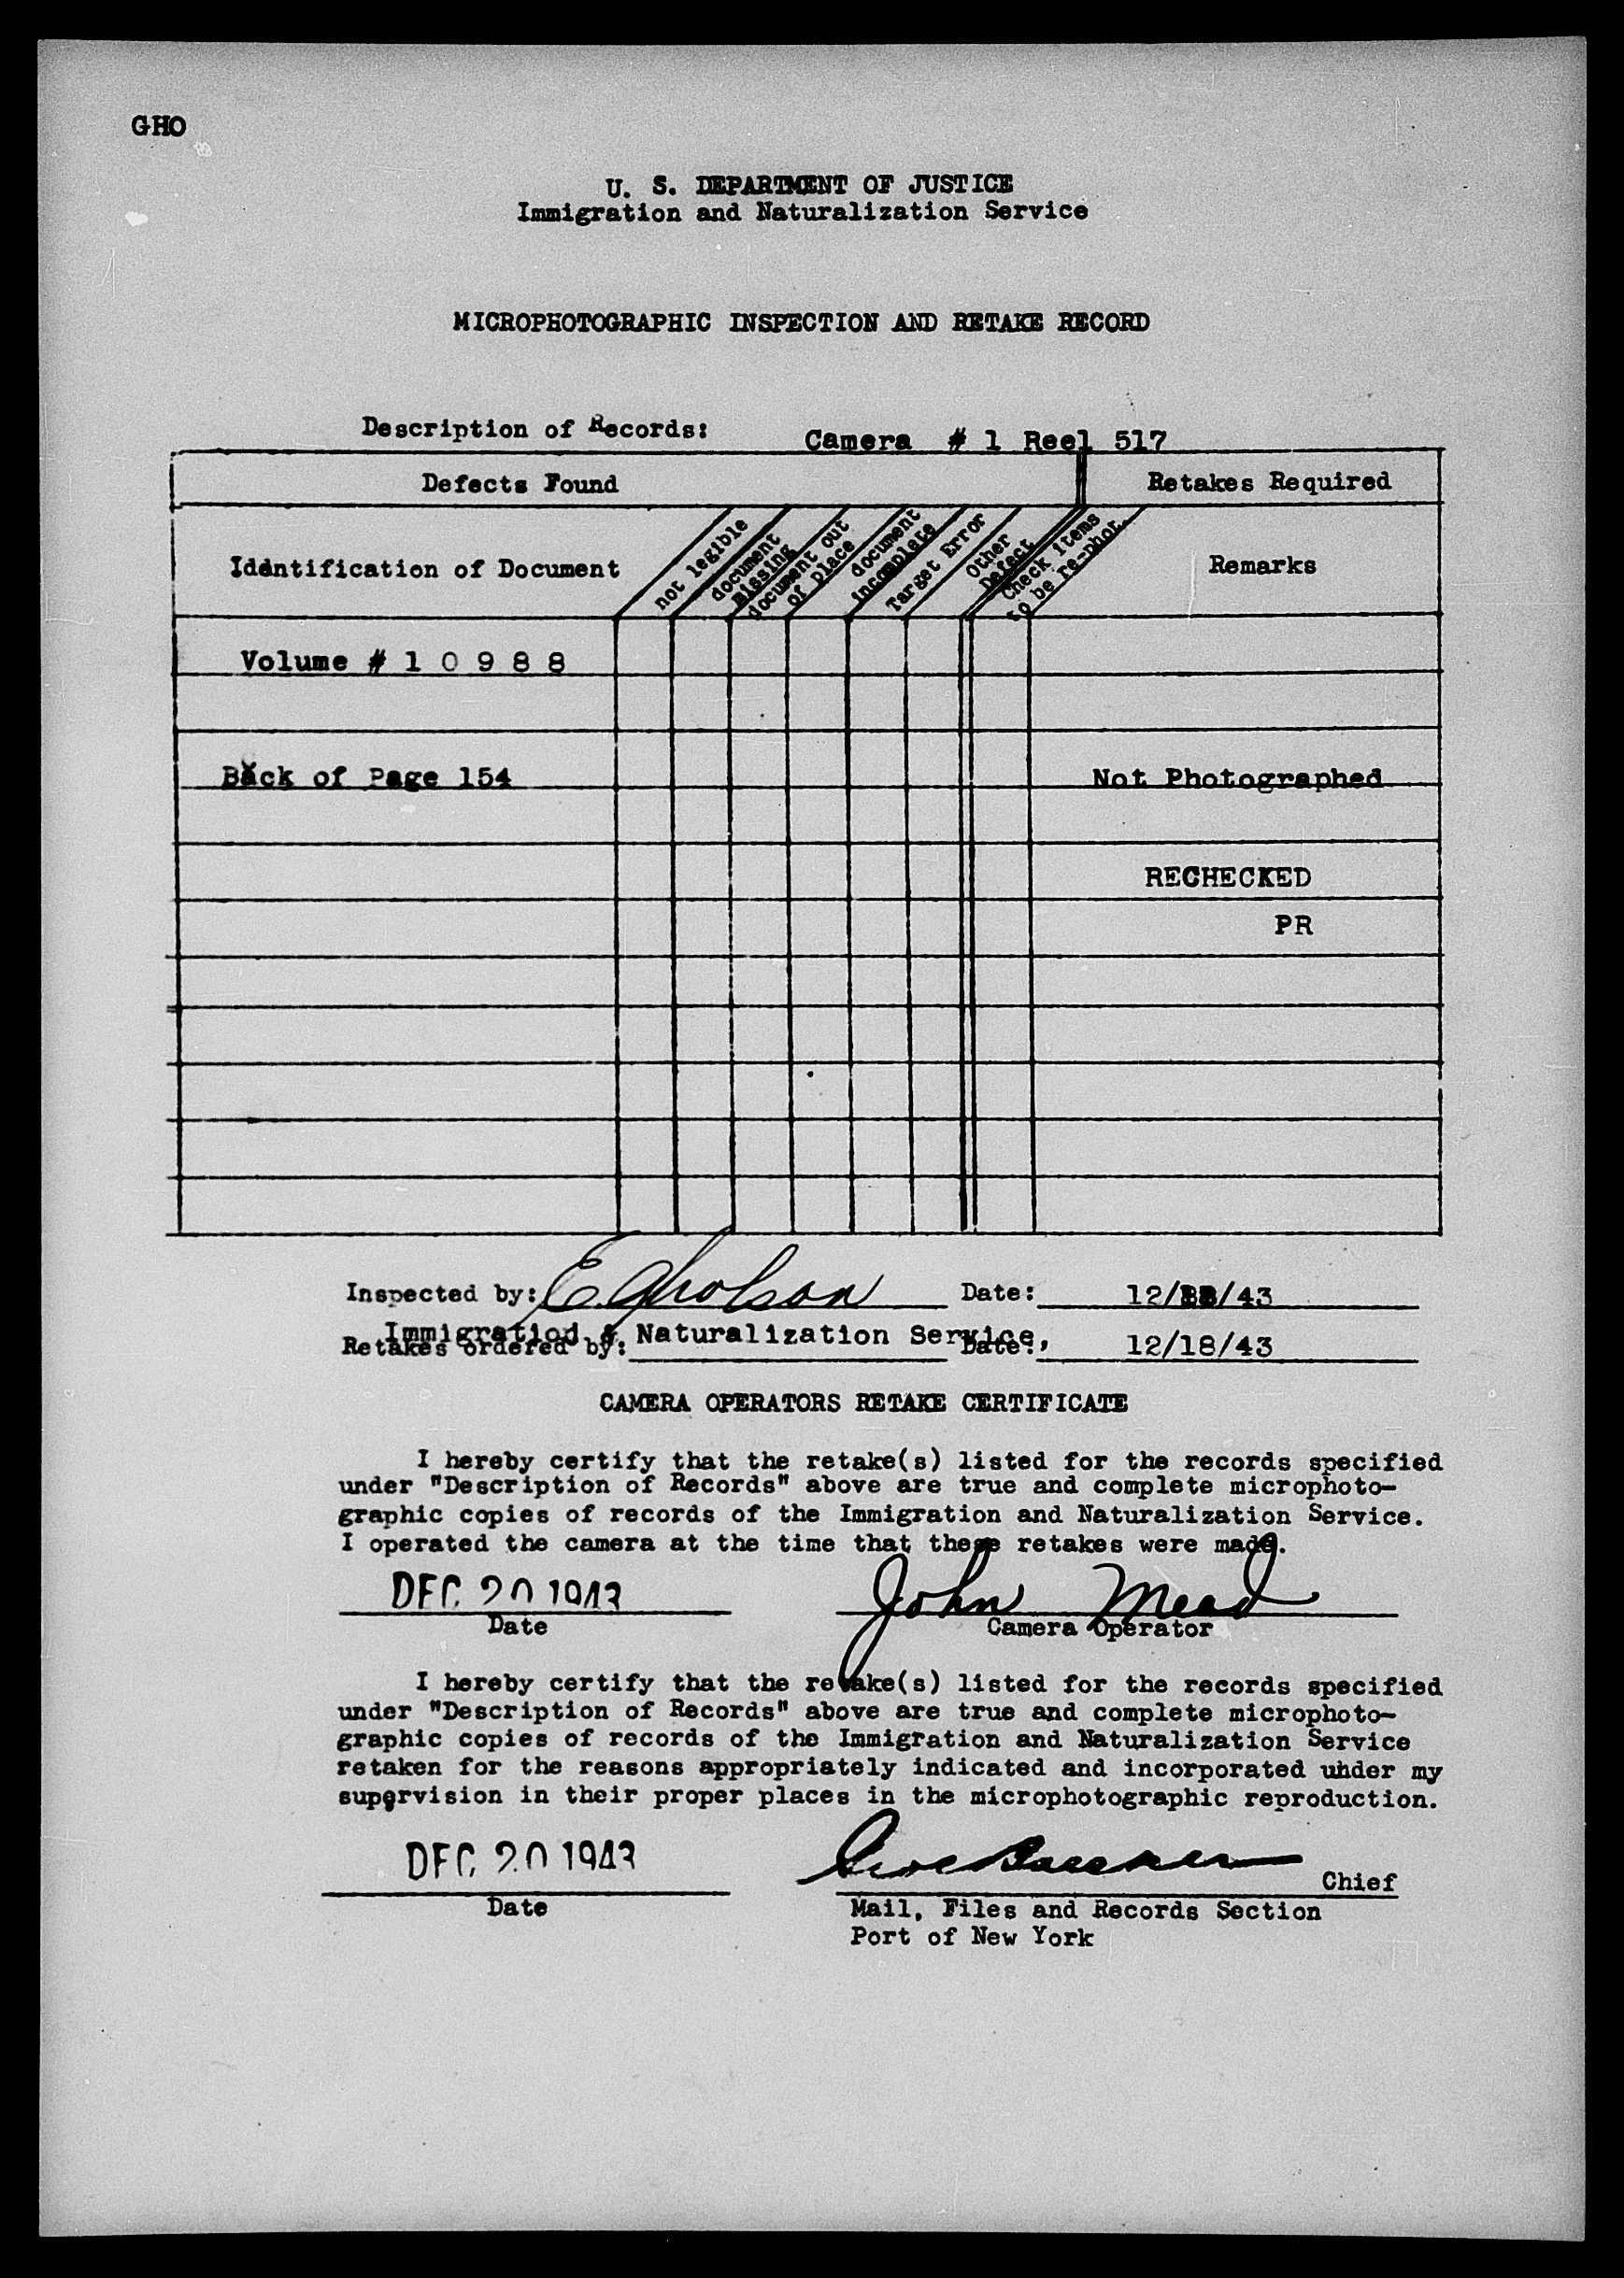 GHO
U. S. DEPARTMENT OF JUSTICE
Immigration and Naturalization Service
MICROPHOTOGRAPHIC INSPECTION AND RETAKE RECORD
Description of Records: Camera # 1 Reel 517
Defects Found Retakes Required
Identification of Document
not legible
document
missing
document out
of place
document
incomplete
Target Error
Other
Defect
Check items
to be re-phot.
Remarks
Volume # 1 0 9 8 8
Back of Page 154 Not Photographed
RECHECKED
PR
Inspected by: E. Gholson Date: 12/ /43
Immigration & Naturalization Service,
Retakes ordered by: Date: 12/18/43
CAMERA OPERATORS RETAKE CERTIFICATE
I hereby certify that the retake(s) listed for the records specified
under "Description of Records" above are true and complete microphoto-
graphic copies of records of the Immigration and Naturalization Service.
I operated the camera at the time that these retakes were made.
DEC 20 1943 John Mead
Date Camera Operator
I hereby certify that the retake(s) listed for the records specified
under "Description of Records" above are true and complete microphoto-
graphic copies of records of the Immigration and Naturalization Service
retaken for the reasons appropriately indicated and incorporated under my
supervision in their proper places in the microphotographic reproduction.
DEC 20 1943 Chief
Date Mail, Files and Records Section
Port of New York